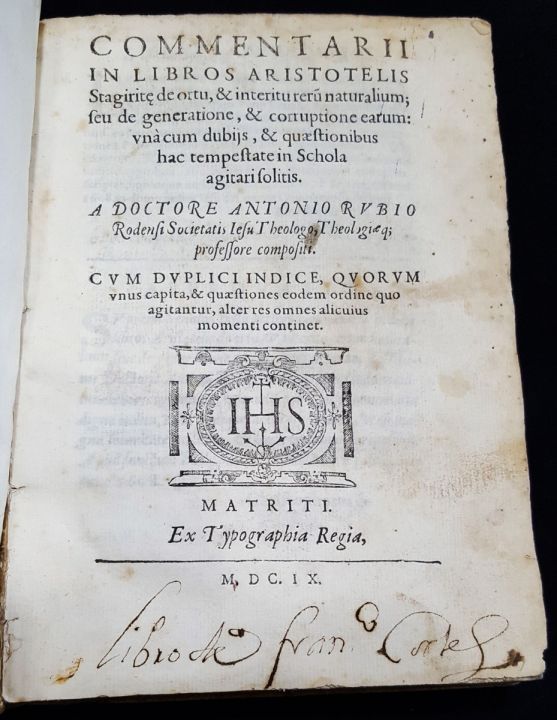 COMMENTARII
IN LIBROS ARISTOTELIS
Stagiritę de ortu, & interitu rerũ naturalium;
seu de generatione, & corruptione earum:
vnà cum dubijs, & quæstionibus
hac tempestate in Schola
agitari solitis.
A DOCTORE ANTONIO RVBIO
Rodensi Societatis Iesu Theologo, Theologiæq;
professore compositi.
CVM DVPLICI INDICE, QVORVM
vnus capita, & quæstiones eodem ordine quo
agitantur, alter res omnes alicuius
momenti continet.
IHS
MATRITI.
Ex Typographia Regia,
M, DC. IX.
libro de fran.co Cortes